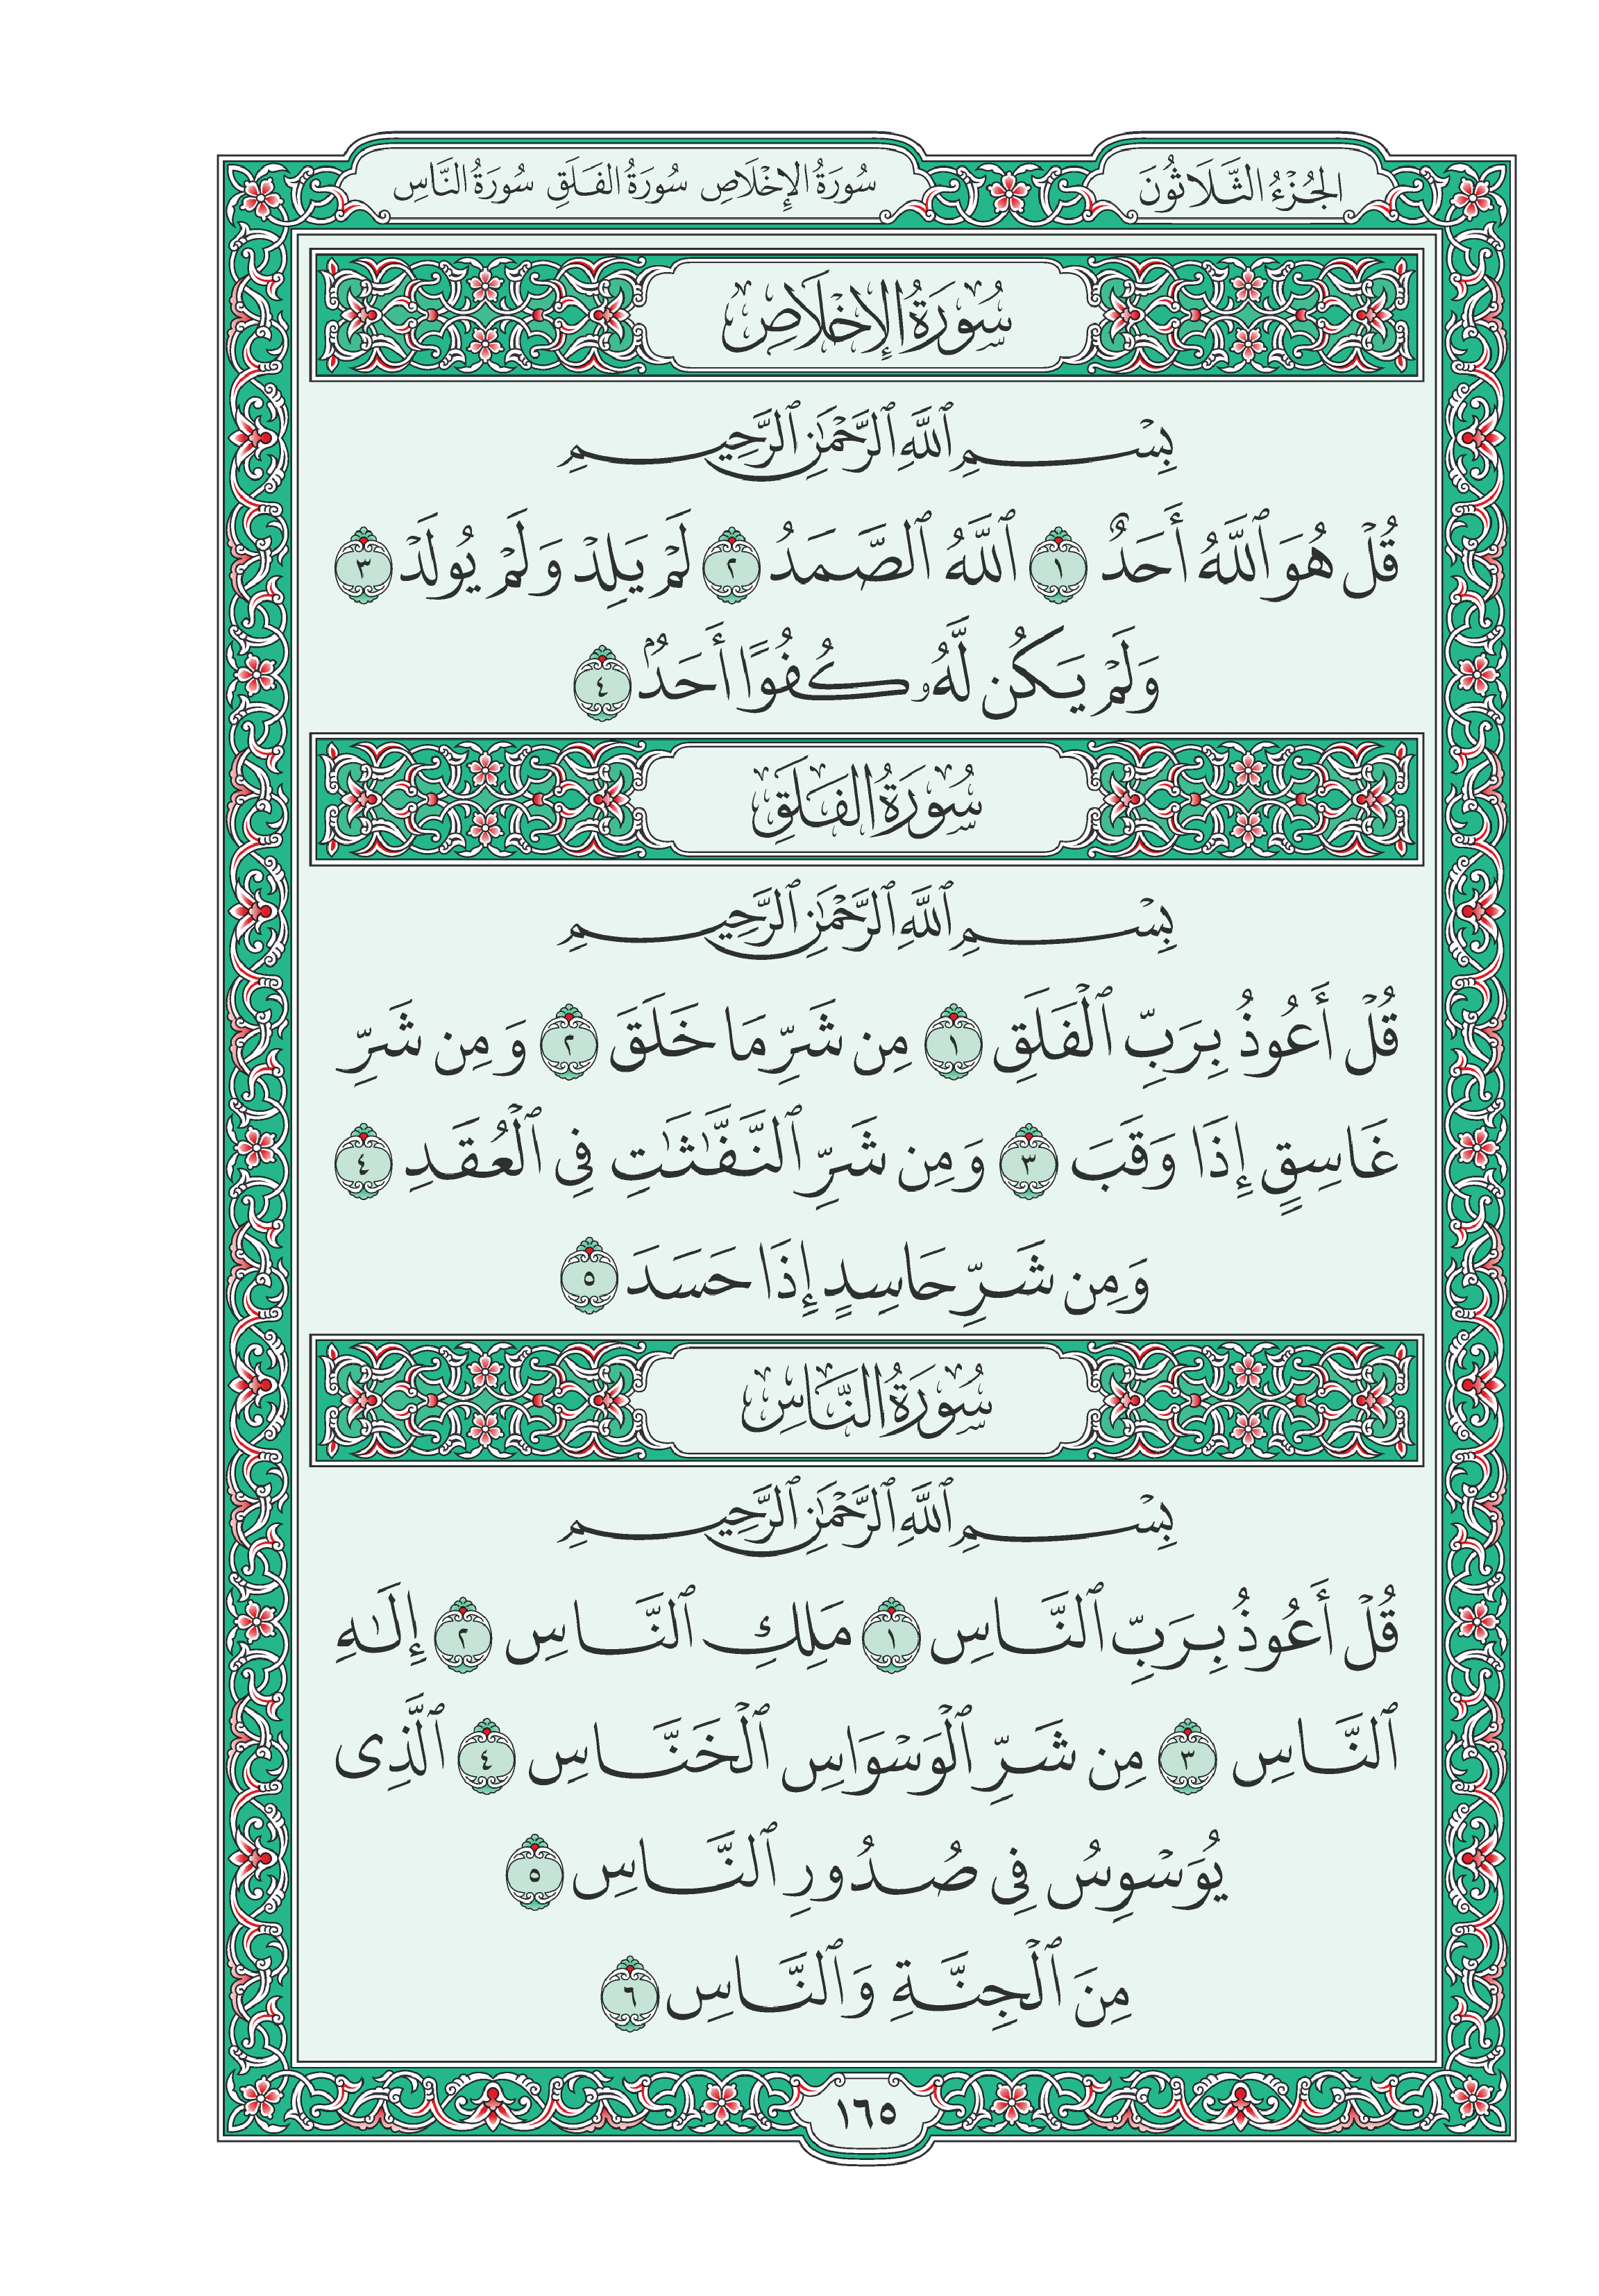 الجُزْءُ الثَّلَاثُونَ
سُورَةُ الإِخْلَاصِ سُورَةُ الفَلَقِ سُورَةُ النَّاسِ
سُورَةُ الإِخْلَاصِ
بِسْمِ ٱللَّهِ ٱلرَّحْمَٰنِ ٱلرَّحِيمِ
قُلْ هُوَ ٱللَّهُ أَحَدٌ ١ ٱللَّهُ ٱلصَّمَدُ ٢ لَمْ يَلِدْ وَلَمْ يُولَدْ ٣
وَلَمْ يَكُن لَّهُۥ كُفُوًا أَحَدٌۢ ٤
سُورَةُ الفَلَقِ
بِسْمِ ٱللَّهِ ٱلرَّحْمَٰنِ ٱلرَّحِيمِ
قُلْ أَعُوذُ بِرَبِّ ٱلْفَلَقِ ١ مِن شَرِّ مَا خَلَقَ ٢ وَمِن شَرِّ
غَاسِقٍ إِذَا وَقَبَ ٣ وَمِن شَرِّ ٱلنَّفَّٰثَٰتِ فِى ٱلْعُقَدِ ٤
وَمِن شَرِّ حَاسِدٍ إِذَا حَسَدَ ٥
سُورَةُ النَّاسِ
بِسْمِ ٱللَّهِ ٱلرَّحْمَٰنِ ٱلرَّحِيمِ
قُلْ أَعُوذُ بِرَبِّ ٱلنَّاسِ ١ مَلِكِ ٱلنَّاسِ ٢ إِلَٰهِ
ٱلنَّاسِ ٣ مِن شَرِّ ٱلْوَسْوَاسِ ٱلْخَنَّاسِ ٤ ٱلَّذِى
يُوَسْوِسُ فِى صُدُورِ ٱلنَّاسِ ٥
مِنَ ٱلْجِنَّةِ وَٱلنَّاسِ ٦
١٦٥